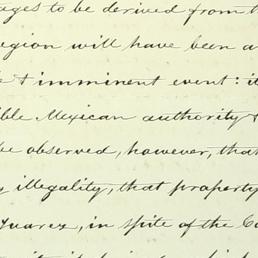 ages to be derived from t
egion will have been a
& imminent event: i
ible Mexican authority &
be observed, however, that
illegality, that property
Juarez, in spite of the Co